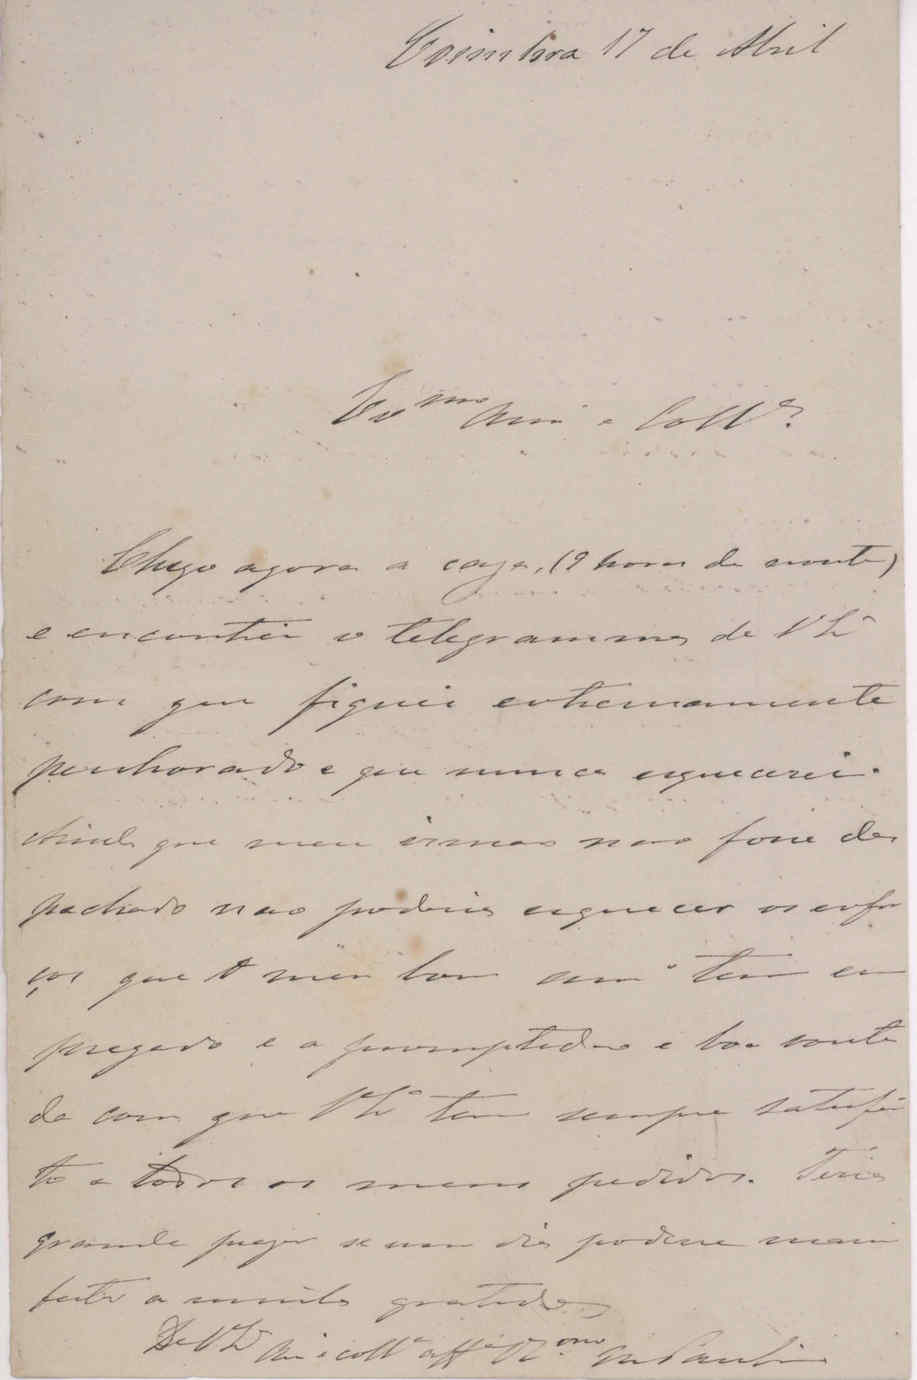 Coimbra 17 de Abril
Ex.mo Am.º e Coll.ª
Chego agora a caza, (9 horas da noute)
e encontrei o telegramma de V. Ex.ª
com que fiquei extremamente
penhorado e que nunca esquecerei.
Ainda que meu irmao nao fosse des
pachado nao poderia esquecer os esfor
ços que o meu bom am.º tem em
pregado e a promptidao e boa vonta
de com que V. Ex.ª tem sempre satisfei
to a todos os meus pedidos. Teria
grande prazer se um dia podesse mani
festar a minha gratidao
De V. Ex.ª
Am.º e coll.ª aff.º